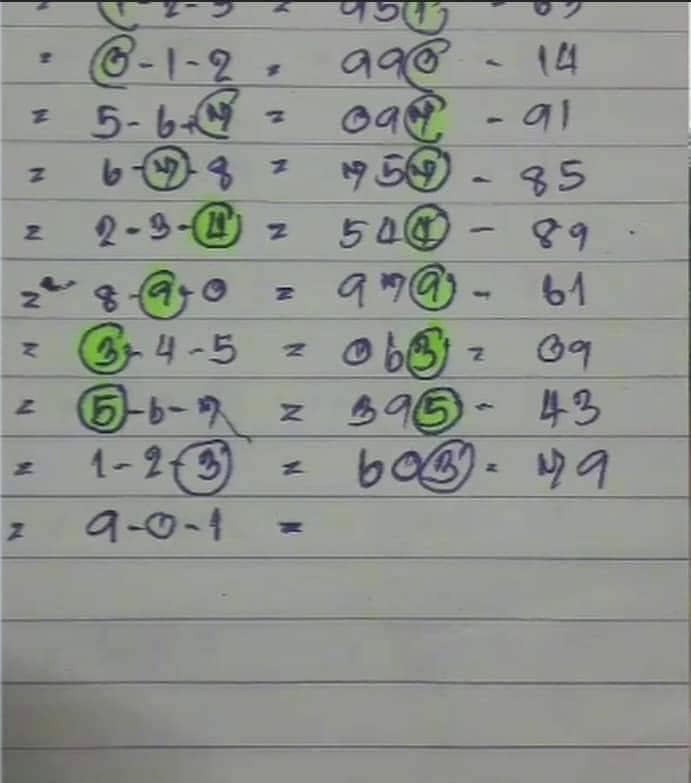 = 0-1-2 = 990 - 14
= 5-6-7 = 097 - 91
= 6-7-8 = 757 - 85
= 2-3-4 = 544 - 89
= 8-9-0 = 979 - 61
= 3-4-5 = 063 = 09
= 5-6-7 = 395 - 43
= 1-2-3 = 603 = 79
= 9-0-1 =